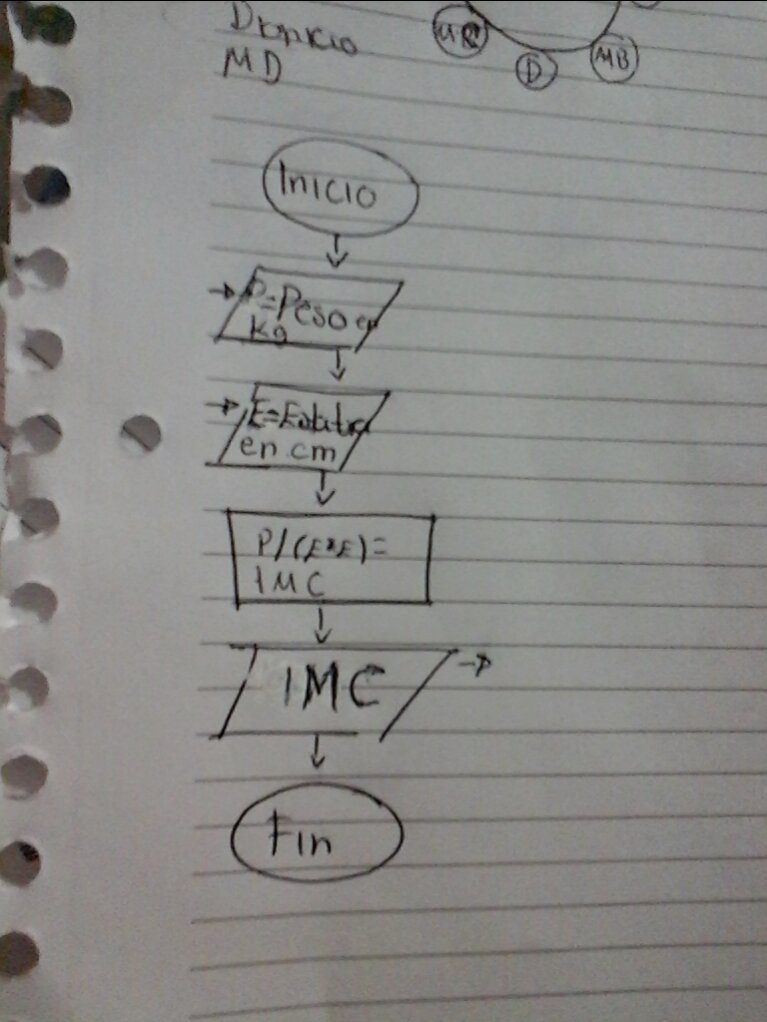 MD
UR
D
MB
Inicio
P=Peso en
kg
E=Estatura
en cm
P/(E*E)=
IMC
IMC
Fin